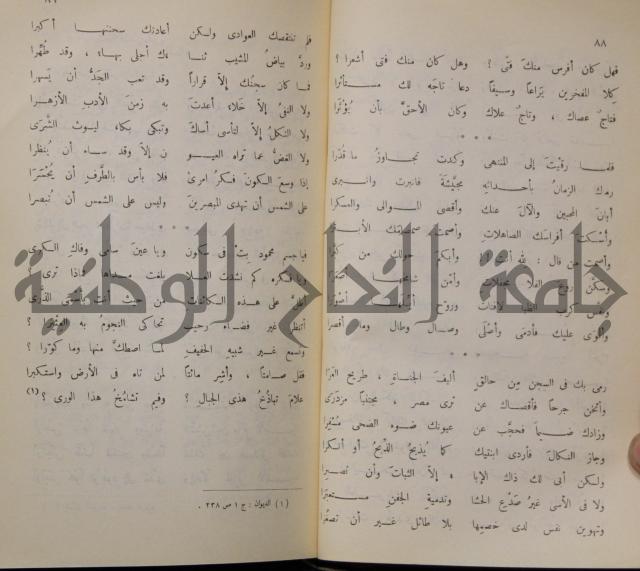 ٨٨
فهل كان أفرس منك فتى ؟ وهل كان منك فتى أشعرا ؟
كلا المفخرين يراعاً وسيفاً دعا تاجه لك مستأثرا
فتاج عصاك ، وتاج علاك وكان الأحق بأن يؤثرا
* * *
فلما رقيت إلى المنتهى وكدت تجاوز ما قدرا
رماك الزمان بأحداثه
أبان المحبين والآل عنك وأقصى الموالى والعسكرا
وأسكت أفراسك الصاهلات وأصمت
وأصمت من قال :
وسكن روح الفلا
عليك فأدمى وأصلى وصال وطال وما أقصرا
* * *
رمى بك فى السجن من حالق أليف الضنى ، طريح العرا
وأثخن جرحاً فأقصاك عن ترى مصر ، مجتنباً مزدرى
وزادك ضيماً فحجب عن عيونك ضوء الضحى مسفرا
وجاز النكال فأردى ابنتيك كما يذبح الذبح أو أنكرا
ولكن أبى لك ذاك الإبا ء إلا الثبات وأن تصبرا
ولا فى الأسى غير صدع الحشا وتدمية الجفن مستعبرا
وتهوين نفس لدى خصمها بلا طائل غير أن تصغرا
فلم تنتقصك العوادى ولكن أعادتك سحنتها أكبرا
ورد بياض المشيب ثنا ءك أحلى بهاء ، وقد طهرا
فما كان سجنك إلا قراراً وقد تعب الجد أن يسهرا
ولا النفى إلا خلاء أعدت به زمن الأدب الأزهرا
ولا الثكل إلا لتأسى أساك وتبكى بكاء ليوث الشرى
ولا الغض عما تراه العيو ن إلا وقد ساء أن ينظرا
إذا وسع الكون فكر امرئ فلا بأس بالطرف أن يحسرا
على الشمس أن تهدى المبصرين وليس على الشمس أن تبصرا
* * *
فياجسم محمود بت فى سكون ويا عين سامى وفاك الكرى
ويا فكره كم نشدت العلا بلغت مداها فماذا ترى ؟
أطل على هذه الكائنات من حيث أنت بأسمى الذرى
أتنظر غير فضاء رحيب تحاكى النجوم به العثيرا ؟
وتسمع غير شبيه الحفيف لما اصطك منها وما كورا ؟
فقل صامتاً ، وأشر مائتاً لمن تاه فى الأرض واستكبرا
علام تباذخ هذى الجبال ؟ وفيم تشامخ هذا الورى ؟ (١)
(١) الديوان : ج ١ ص ٢٣٨ .
جامعة النجاح الوطنية